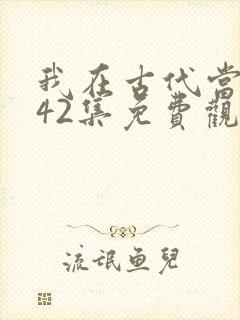 我在古代當
42集免費觀
流氓魚兒